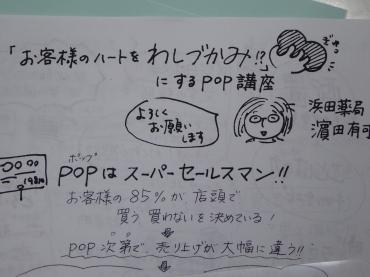 「お客様のハートをわしづかみ!?」
ぎゅっ
にするPOP講座
よろしく
お願い
します
浜田薬局
濵田有可
ポップ
POPはスーパーセールスマン!!
お客様の85%が店頭で
買う買わないを決めている!
POP次第で、売り上げが大幅に違う!!